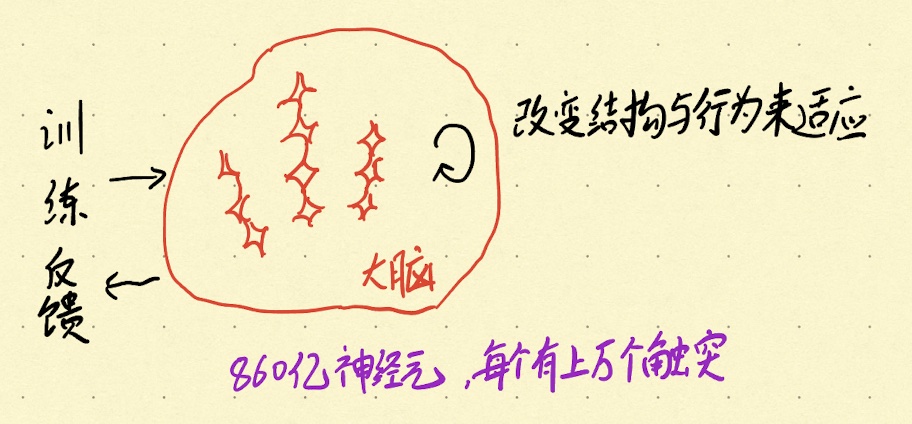 训练
反馈
改变结构与行为来适应
大脑
860亿神经元,每个有上万个触突